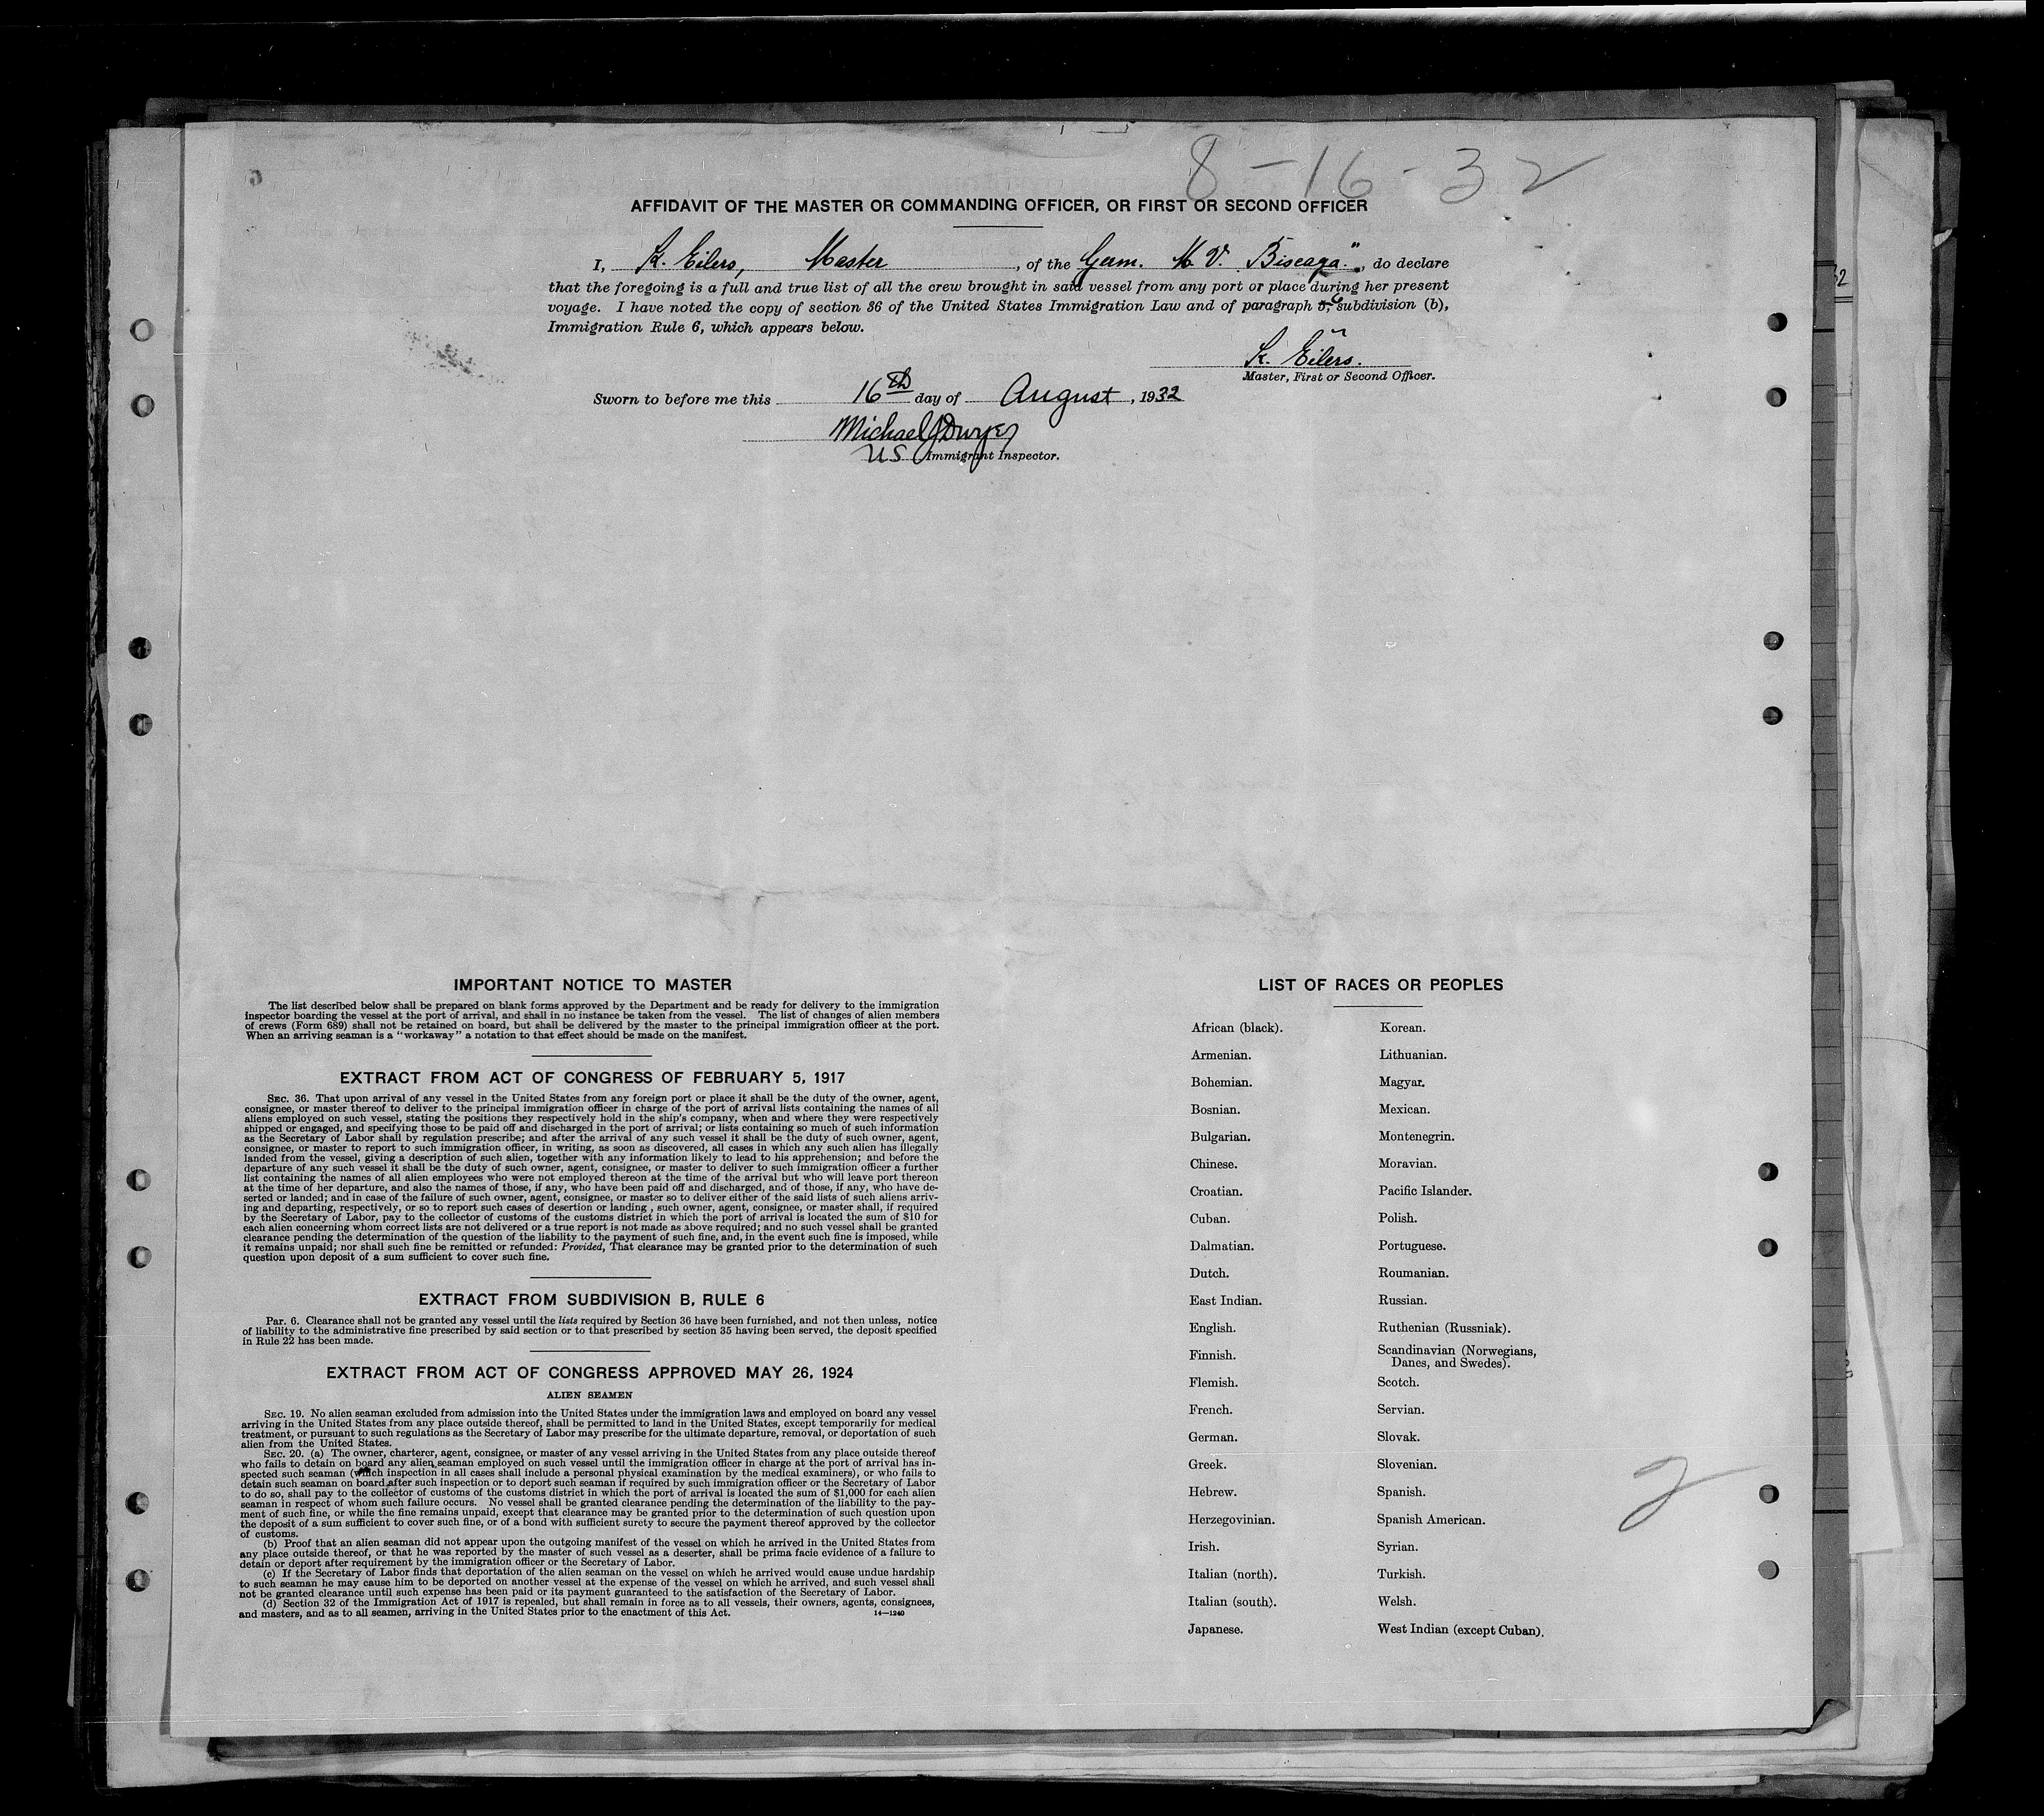 8-16-32
AFFIDAVIT OF THE MASTER OR COMMANDING OFFICER, OR FIRST OR SECOND OFFICER
I, K. Eilers, Master, of the Germ. M.V. Biscaya", do declare
that the foregoing is a full and true list of all the crew brought in said vessel from any port or place during her present
voyage. I have noted the copy of section 36 of the United States Immigration Law and of paragraph 5, 6 subdivision (b),
Immigration Rule 6, which appears below.
K. Eilers.
Master, First or Second Officer.
Sworn to before me this 16th day of August, 1932
Michael J Dwyer
US Immigrant Inspector.
IMPORTANT NOTICE TO MASTER
The list described below shall be prepared on blank forms approved by the Department and be ready for delivery to the immigration
inspector boarding the vessel at the port of arrival, and shall in no instance be taken from the vessel. The list of changes of alien members
of crews (Form 689) shall not be retained on board, but shall be delivered by the master to the principal immigration officer at the port.
When an arriving seaman is a "workaway" a notation to that effect should be made on the manifest.
EXTRACT FROM ACT OF CONGRESS OF FEBRUARY 5, 1917
SEC. 36. That upon arrival of any vessel in the United States from any foreign port or place it shall be the duty of the owner, agent,
consignee, or master thereof to deliver to the principal immigration officer in charge of the port of arrival lists containing the names of all
aliens employed on such vessel, stating the positions they respectively hold in the ship's company, when and where they were respectively
shipped or engaged, and specifying those to be paid off and discharged in the port of arrival; or lists containing so much of such information
as the Secretary of Labor shall by regulation prescribe; and after the arrival of any such vessel it shall be the duty of such owner, agent,
consignee, or master to report to such immigration officer, in writing, as soon as discovered, all cases in which any such alien has illegally
landed from the vessel, giving a description of such alien, together with any information likely to lead to his apprehension; and before the
departure of any such vessel it shall be the duty of such owner, agent, consignee, or master to deliver to such immigration officer a further
list containing the names of all alien employees who were not employed thereon at the time of the arrival but who will leave port thereon
at the time of her departure, and also the names of those, if any, who have been paid off and discharged, and of those, if any, who have de-
serted or landed; and in case of the failure of such owner, agent, consignee, or master so to deliver either of the said lists of such aliens arriv-
ing and departing, respectively, or so to report such cases of desertion or landing, such owner, agent, consignee, or master shall, if required
by the Secretary of Labor, pay to the collector of customs of the customs district in which the port of arrival is located the sum of $10 for
each alien concerning whom correct lists are not delivered or a true report is not made as above required; and no such vessel shall be granted
clearance pending the determination of the question of the liability to the payment of such fine, and, in the event such fine is imposed, while
it remains unpaid; nor shall such fine be remitted or refunded: Provided, That clearance may be granted prior to the determination of such
question upon deposit of a sum sufficient to cover such fine.
EXTRACT FROM SUBDIVISION B, RULE 6
Par. 6. Clearance shall not be granted any vessel until the lists required by Section 36 have been furnished, and not then unless, notice
of liability to the administrative fine prescribed by said section or to that prescribed by section 35 having been served, the deposit specified
in Rule 22 has been made.
EXTRACT FROM ACT OF CONGRESS APPROVED MAY 26, 1924
ALIEN SEAMEN
SEC. 19. No alien seaman excluded from admission into the United States under the immigration laws and employed on board any vessel
arriving in the United States from any place outside thereof, shall be permitted to land in the United States, except temporarily for medical
treatment, or pursuant to such regulations as the Secretary of Labor may prescribe for the ultimate departure, removal, or deportation of such
alien from the United States.
SEC. 20. (a) The owner, charterer, agent, consignee, or master of any vessel arriving in the United States from any place outside thereof
who fails to detain on board any alien seaman employed on such vessel until the immigration officer in charge at the port of arrival has in-
spected such seaman (which inspection in all cases shall include a personal physical examination by the medical examiners), or who fails to
detain such seaman on board after such inspection or to deport such seaman if required by such immigration officer or the Secretary of Labor
to do so, shall pay to the collector of customs of the customs district in which the port of arrival is located the sum of $1,000 for each alien
seaman in respect of whom such failure occurs. No vessel shall be granted clearance pending the determination of the liability to the pay-
ment of such fine, or while the fine remains unpaid, except that clearance may be granted prior to the determination of such question upon
the deposit of a sum sufficient to cover such fine, or of a bond with sufficient surety to secure the payment thereof approved by the collector
of customs.
(b) Proof that an alien seaman did not appear upon the outgoing manifest of the vessel on which he arrived in the United States from
any place outside thereof, or that he was reported by the master of such vessel as a deserter, shall be prima facie evidence of a failure to
detain or deport after requirement by the immigration officer or the Secretary of Labor.
(c) If the Secretary of Labor finds that deportation of the alien seaman on the vessel on which he arrived would cause undue hardship
to such seaman he may cause him to be deported on another vessel at the expense of the vessel on which he arrived, and such vessel shall
not be granted clearance until such expense has been paid or its payment guaranteed to the satisfaction of the Secretary of Labor.
(d) Section 32 of the Immigration Act of 1917 is repealed, but shall remain in force as to all vessels, their owners, agents, consignees,
and masters, and as to all seamen, arriving in the United States prior to the enactment of this Act.
14—1240
LIST OF RACES OR PEOPLES
African (black).
Armenian.
Bohemian.
Bosnian.
Bulgarian.
Chinese.
Croatian.
Cuban.
Dalmatian.
Dutch.
East Indian.
English.
Finnish.
Flemish.
French.
German.
Greek.
Hebrew.
Herzegovinian.
Irish.
Italian (north).
Italian (south).
Japanese.
Korean.
Lithuanian.
Magyar.
Mexican.
Montenegrin.
Moravian.
Pacific Islander.
Polish.
Portuguese.
Roumanian.
Russian.
Ruthenian (Russniak).
Scandinavian (Norwegians,
Danes, and Swedes).
Scotch.
Servian.
Slovak.
Slovenian.
Spanish.
Spanish American.
Syrian.
Turkish.
Welsh.
West Indian (except Cuban).
2